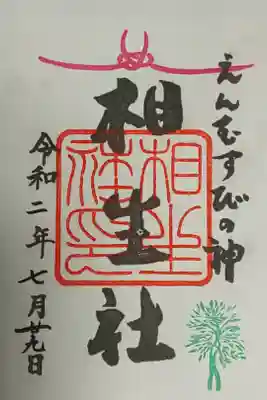 えんむすびの神
相生社
相生社印
令和二年七月廿九日